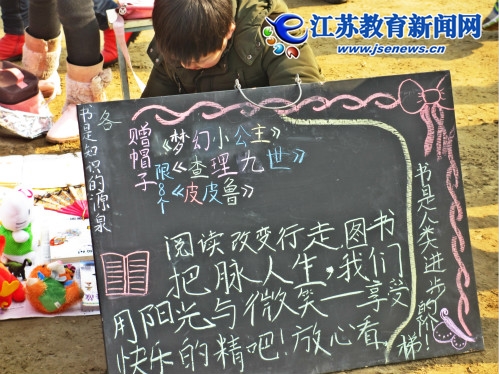 江苏教育新闻网
www.jsenews.cn
各
书是知识的源泉
赠帽子
限8个
《梦幻小公主》
《查理九世》
《皮皮鲁》
阅读改变行走,图书
把脉人生,我们
用阳光与微笑——享受
快乐的精吧!放心看。
书是人类进步的阶梯!